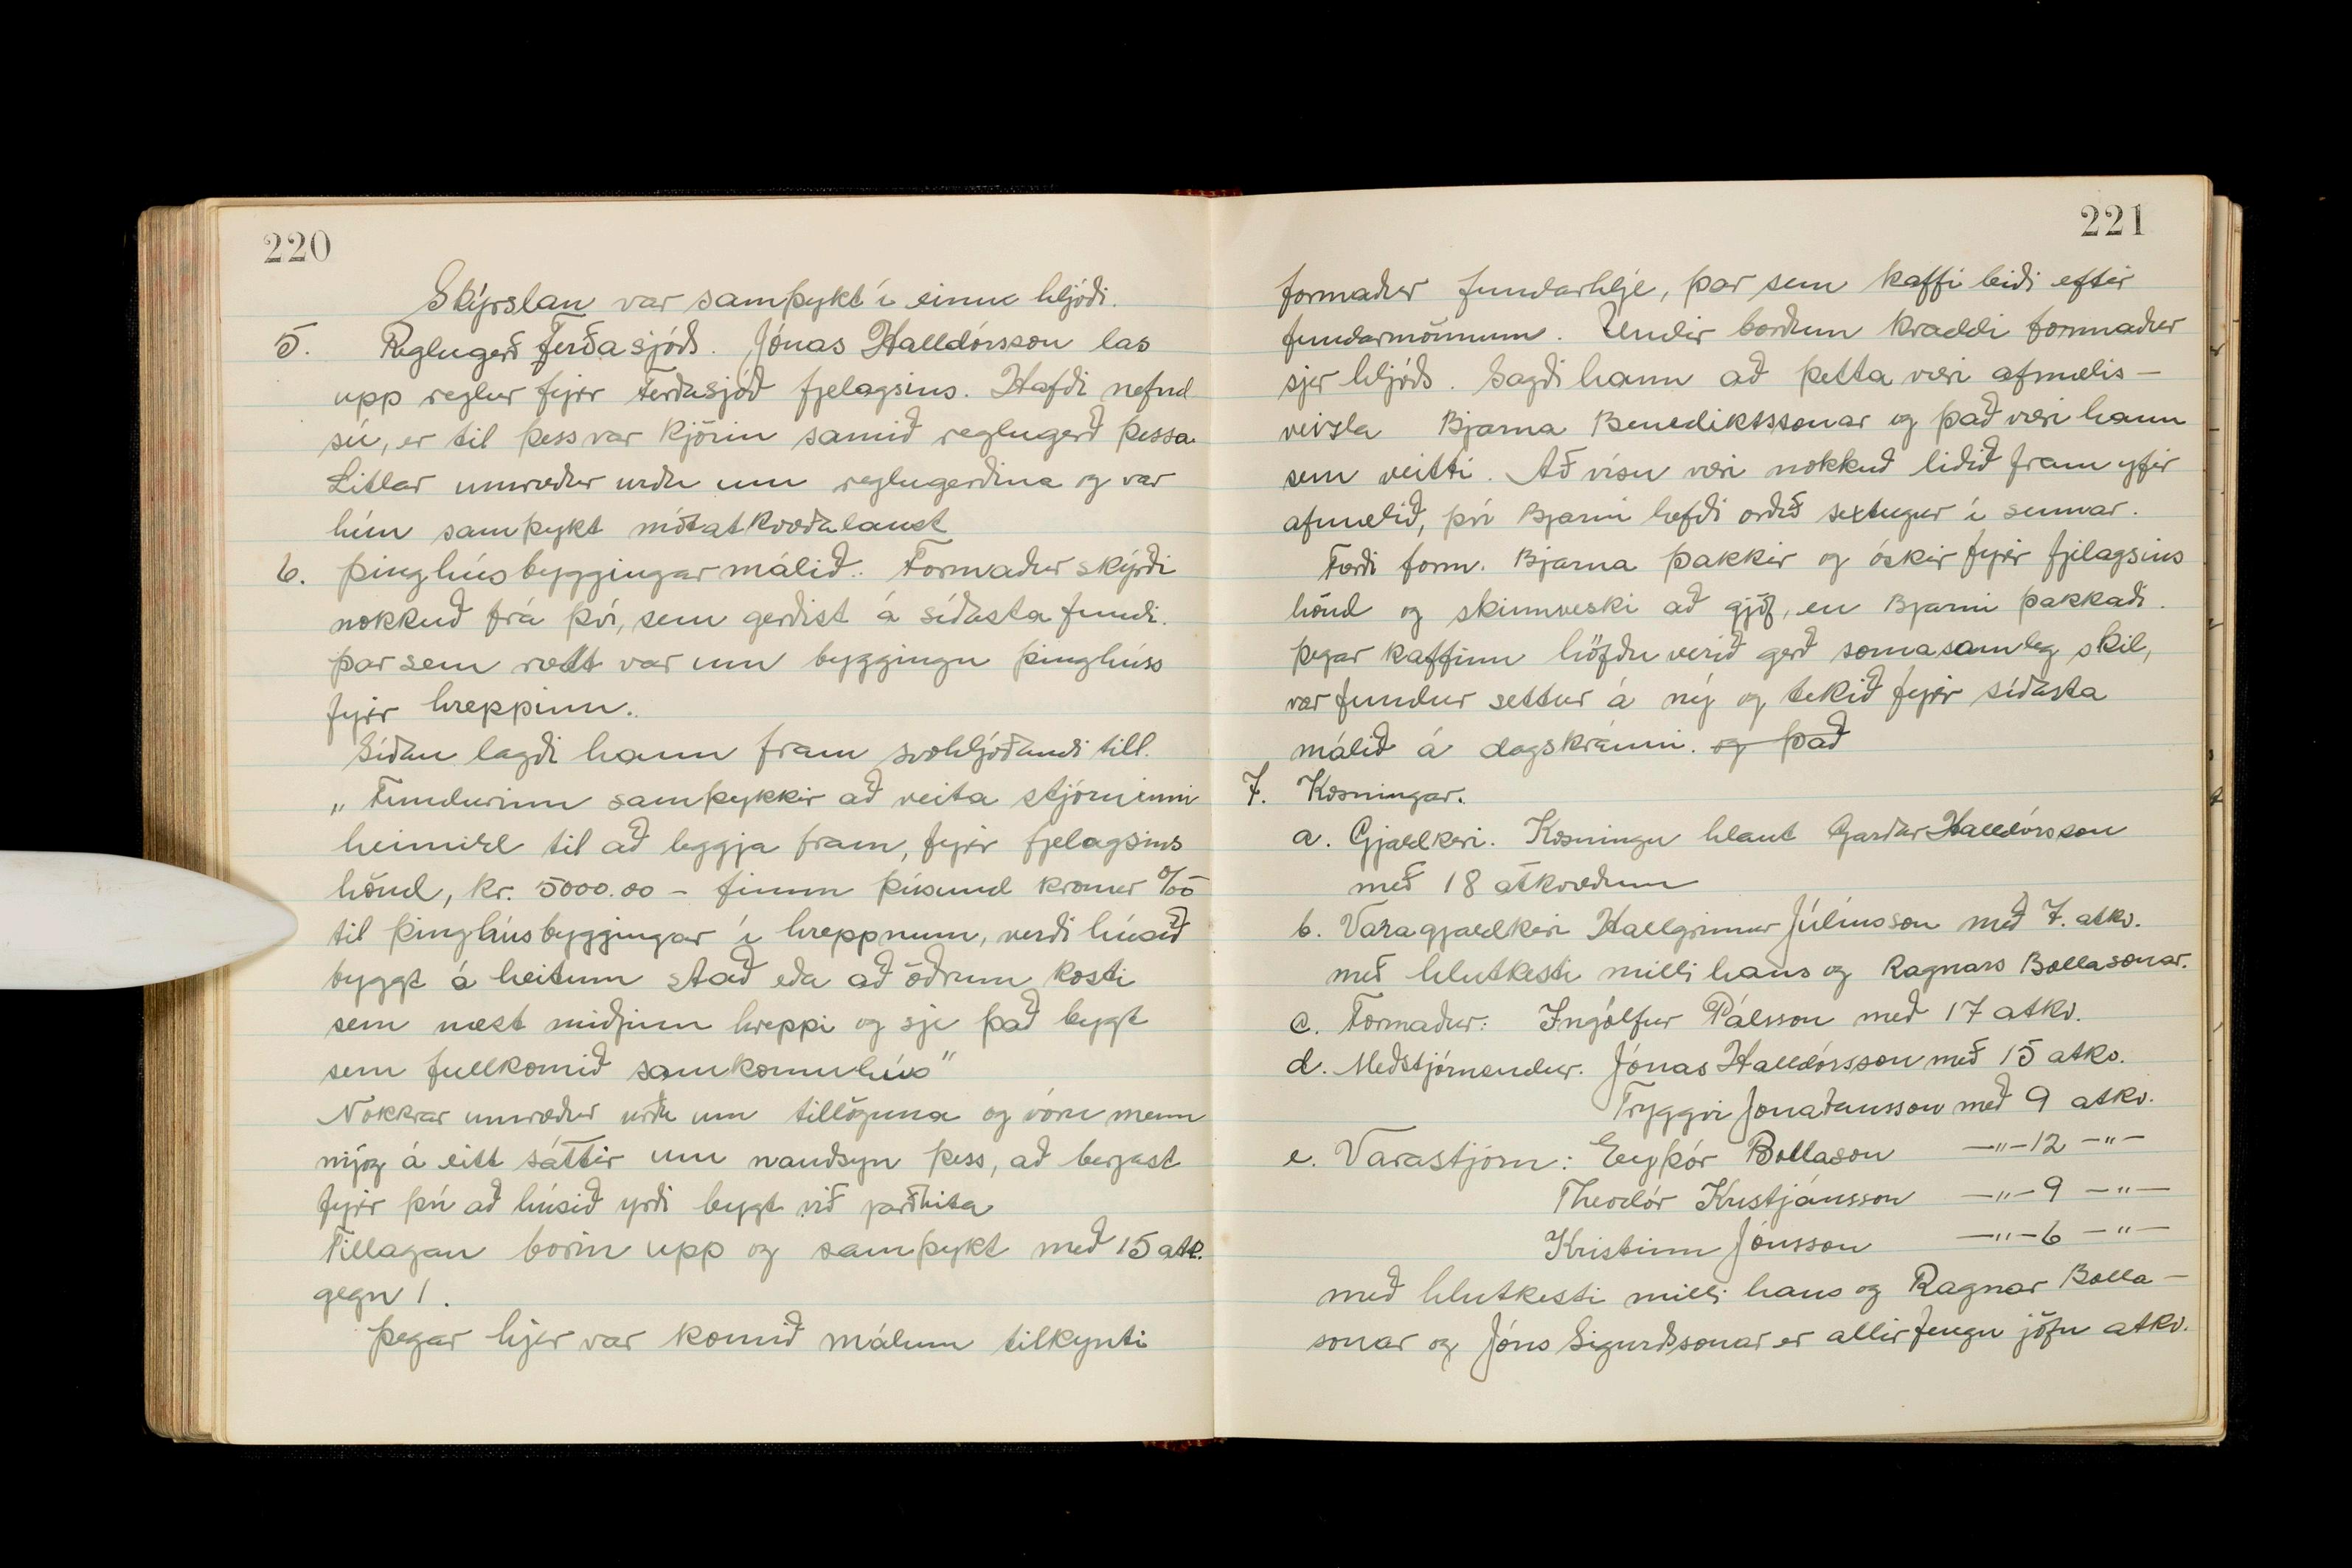 220
Skýrslan var samþykt í einu hljóði.
5. Reglugerð Ferðasjóðs. Jónas Halldórsson las
upp reglur fyrir Ferðasjóð fjelagsins. Hafði nefnd
sú, er til þess var kjörin samið reglugerð þessa
Litlar umræður urðu um reglugerðina og var
hún samþykt mótatkvæðalaust
6. Þinghúsbyggingarmálið. Formaður skýrði
nokkuð frá því, sem gerðist á síðasta fundi.
þar sem rætt var um byggingu þinghúss
fyrir hreppinn.
Síðan lagði hann fram svohljóðandi till.
„Fundurinn samþykkir að veita stjórninni
heimild til að leggja fram, fyrir fjelagsins
hönd, kr. 5000.00 - fimm þúsund krónur 0/00
til þinghúsbyggingar í hreppnum, verði húsið
byggt á heitum stað eða að öðrum kosti
sem næst miðjum hreppi og sje það bygt
sem fullkomið samkomuhús"
Nokkrar umræður urðu um tillöguna og vóru menn
mjög á eitt sáttir um nauðsyn þess, að berjast
fyrir því að húsið yrði bygt við jarðhita
Tillagan borin upp og samþykt með 15 atk.
gegn 1.
Þegar hjer var komið málum tilkynti
221
formaður fundarhlje, þar sem kaffi biði eftir
fundarmönnum. Undir borðum kvaddi formaður
sjer hljóðs. Sagði hann að þetta væri afmælis-
veizla Bjarna Benediktssonar og það væri hann
sem veitti. Að vísu væri nokkuð liðið fram yfir
afmælið, því Bjarni hefði orðið sextugur í sumar.
Færði form. Bjarna þakkir og óskir fyrir fjelagsins
hönd og skinnveski að gjöf, en Bjarni þakkaði.
Þegar kaffinu höfðu verið gerð sómasamleg skil,
var fundur settur á ný og tekið fyrir síðasta
málið á dagskránni. og það
7. Kosningar.
a. Gjaldkeri. Kosningu hlaut Garðar Halldórsson
með 18 atkvæðum
b. Varagjaldkeri Hallgrímur Júlíusson með 7. atkv.
með hlutkesti milli hans og Ragnars Bollasonar.
c. Formaður: Ingólfur Pálsson með 17 atkv.
d. Meðstjórnendur. Jónas Halldórsson með 15 atkv.
Tryggvi Jónatansson með 9 atkv.
e. Varastjórn: Eyþór Bollason —"— 12 —"—
Theodór Kristjánsson —"— 9 —"—
Kristinn Jónsson —"— 6 —"—
með hlutkesti milli hans og Ragnar Bolla-
sonar og Jóns Sigurðsonar er allir fengu jöfn atkv.